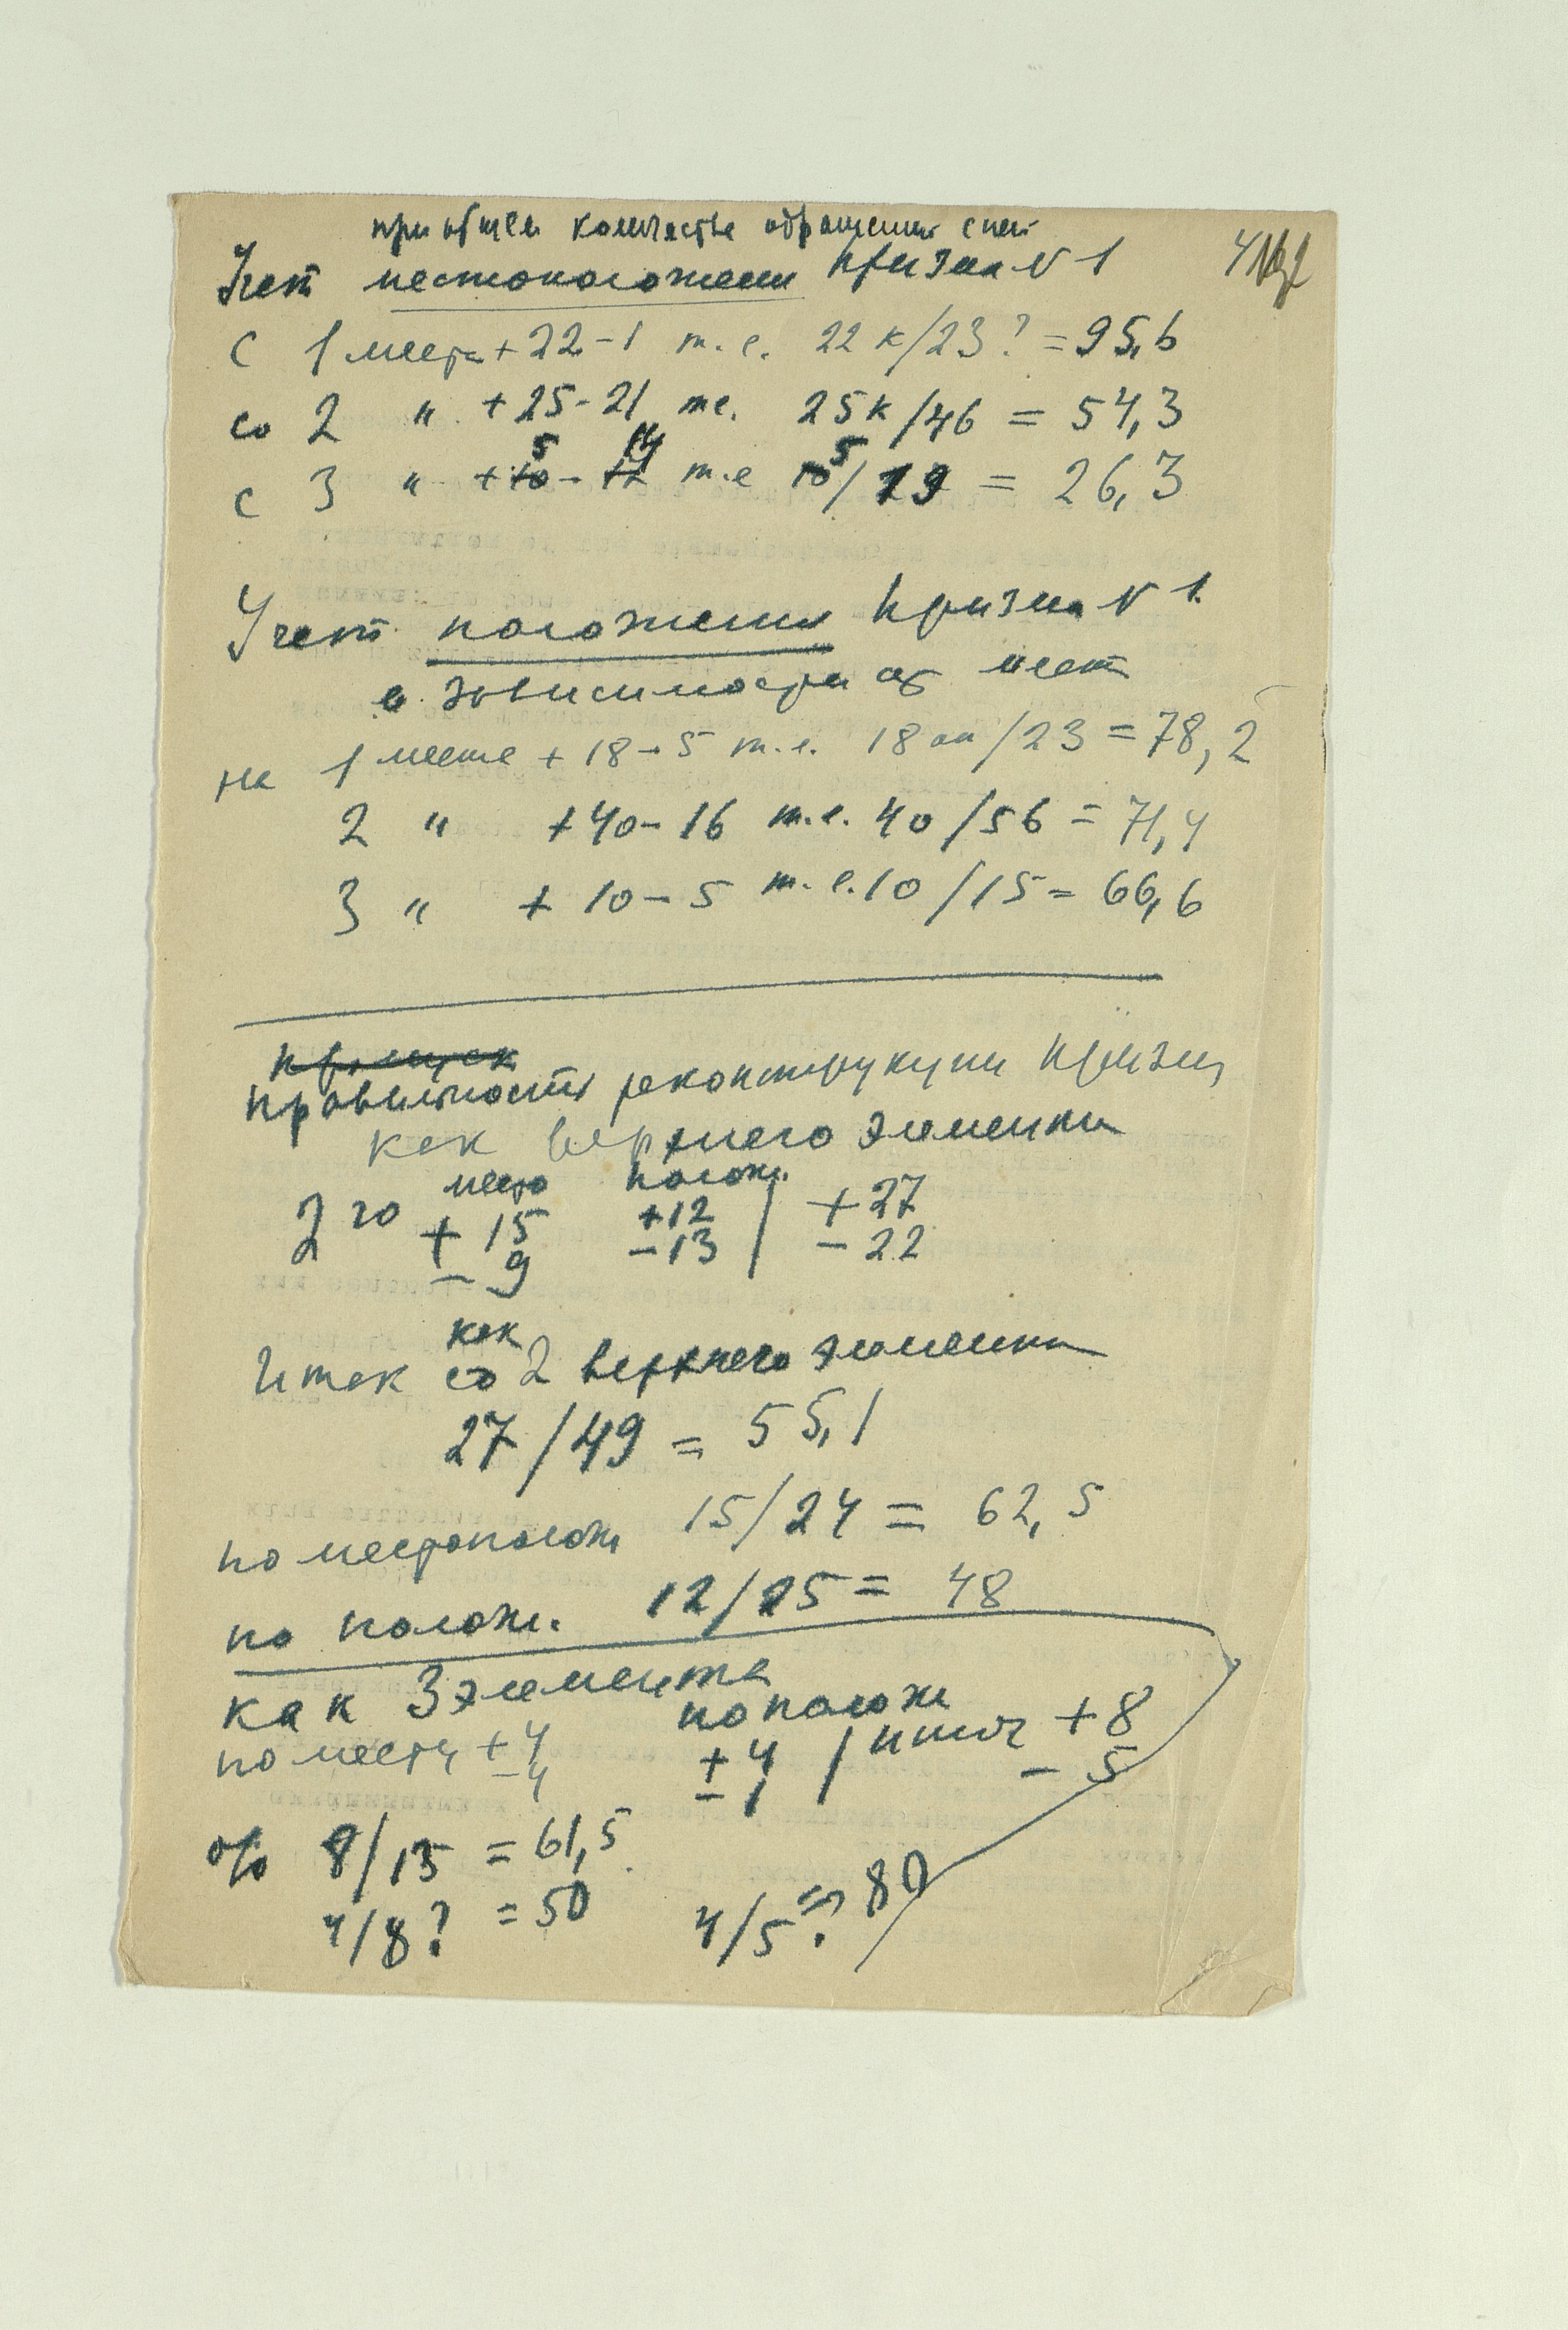 при общем количестве обращений с ней
Учет местоположения призма N 1
с 1 места + 22 - 1 т. е. 22 к/23? = 95,6
со 2 " + 25 - 21 т.е. 25 к/46 = 54,3
с 3 " + 5 - 14 т.е 5/19 = 26,3
Учет положения призма N 1.
в зависимости от мест
на 1 месте + 18 - 5 т. е. 18 он/23 = 78,2
2 " + 40 - 16 т.е. 40/56 = 71,4
3 " + 10 - 5 т. е. 10/15 = 66,6
правильность реконструкции призмы
как верхнего элемента
место полож.
2 го + 15 +12 / + 27
- 9 - 13 - 22
Итак как 2 верхнего элемента
27/49 = 55,1
по местополож 15/24 = 62,5
по полож. 12/25 = 48
как 3 элемента
по месту + 4 по полож + 4 / итог + 8
- 4 - 1 - 5
% 8/13 = 61,5
4/8? = 50 4/5 =? 80